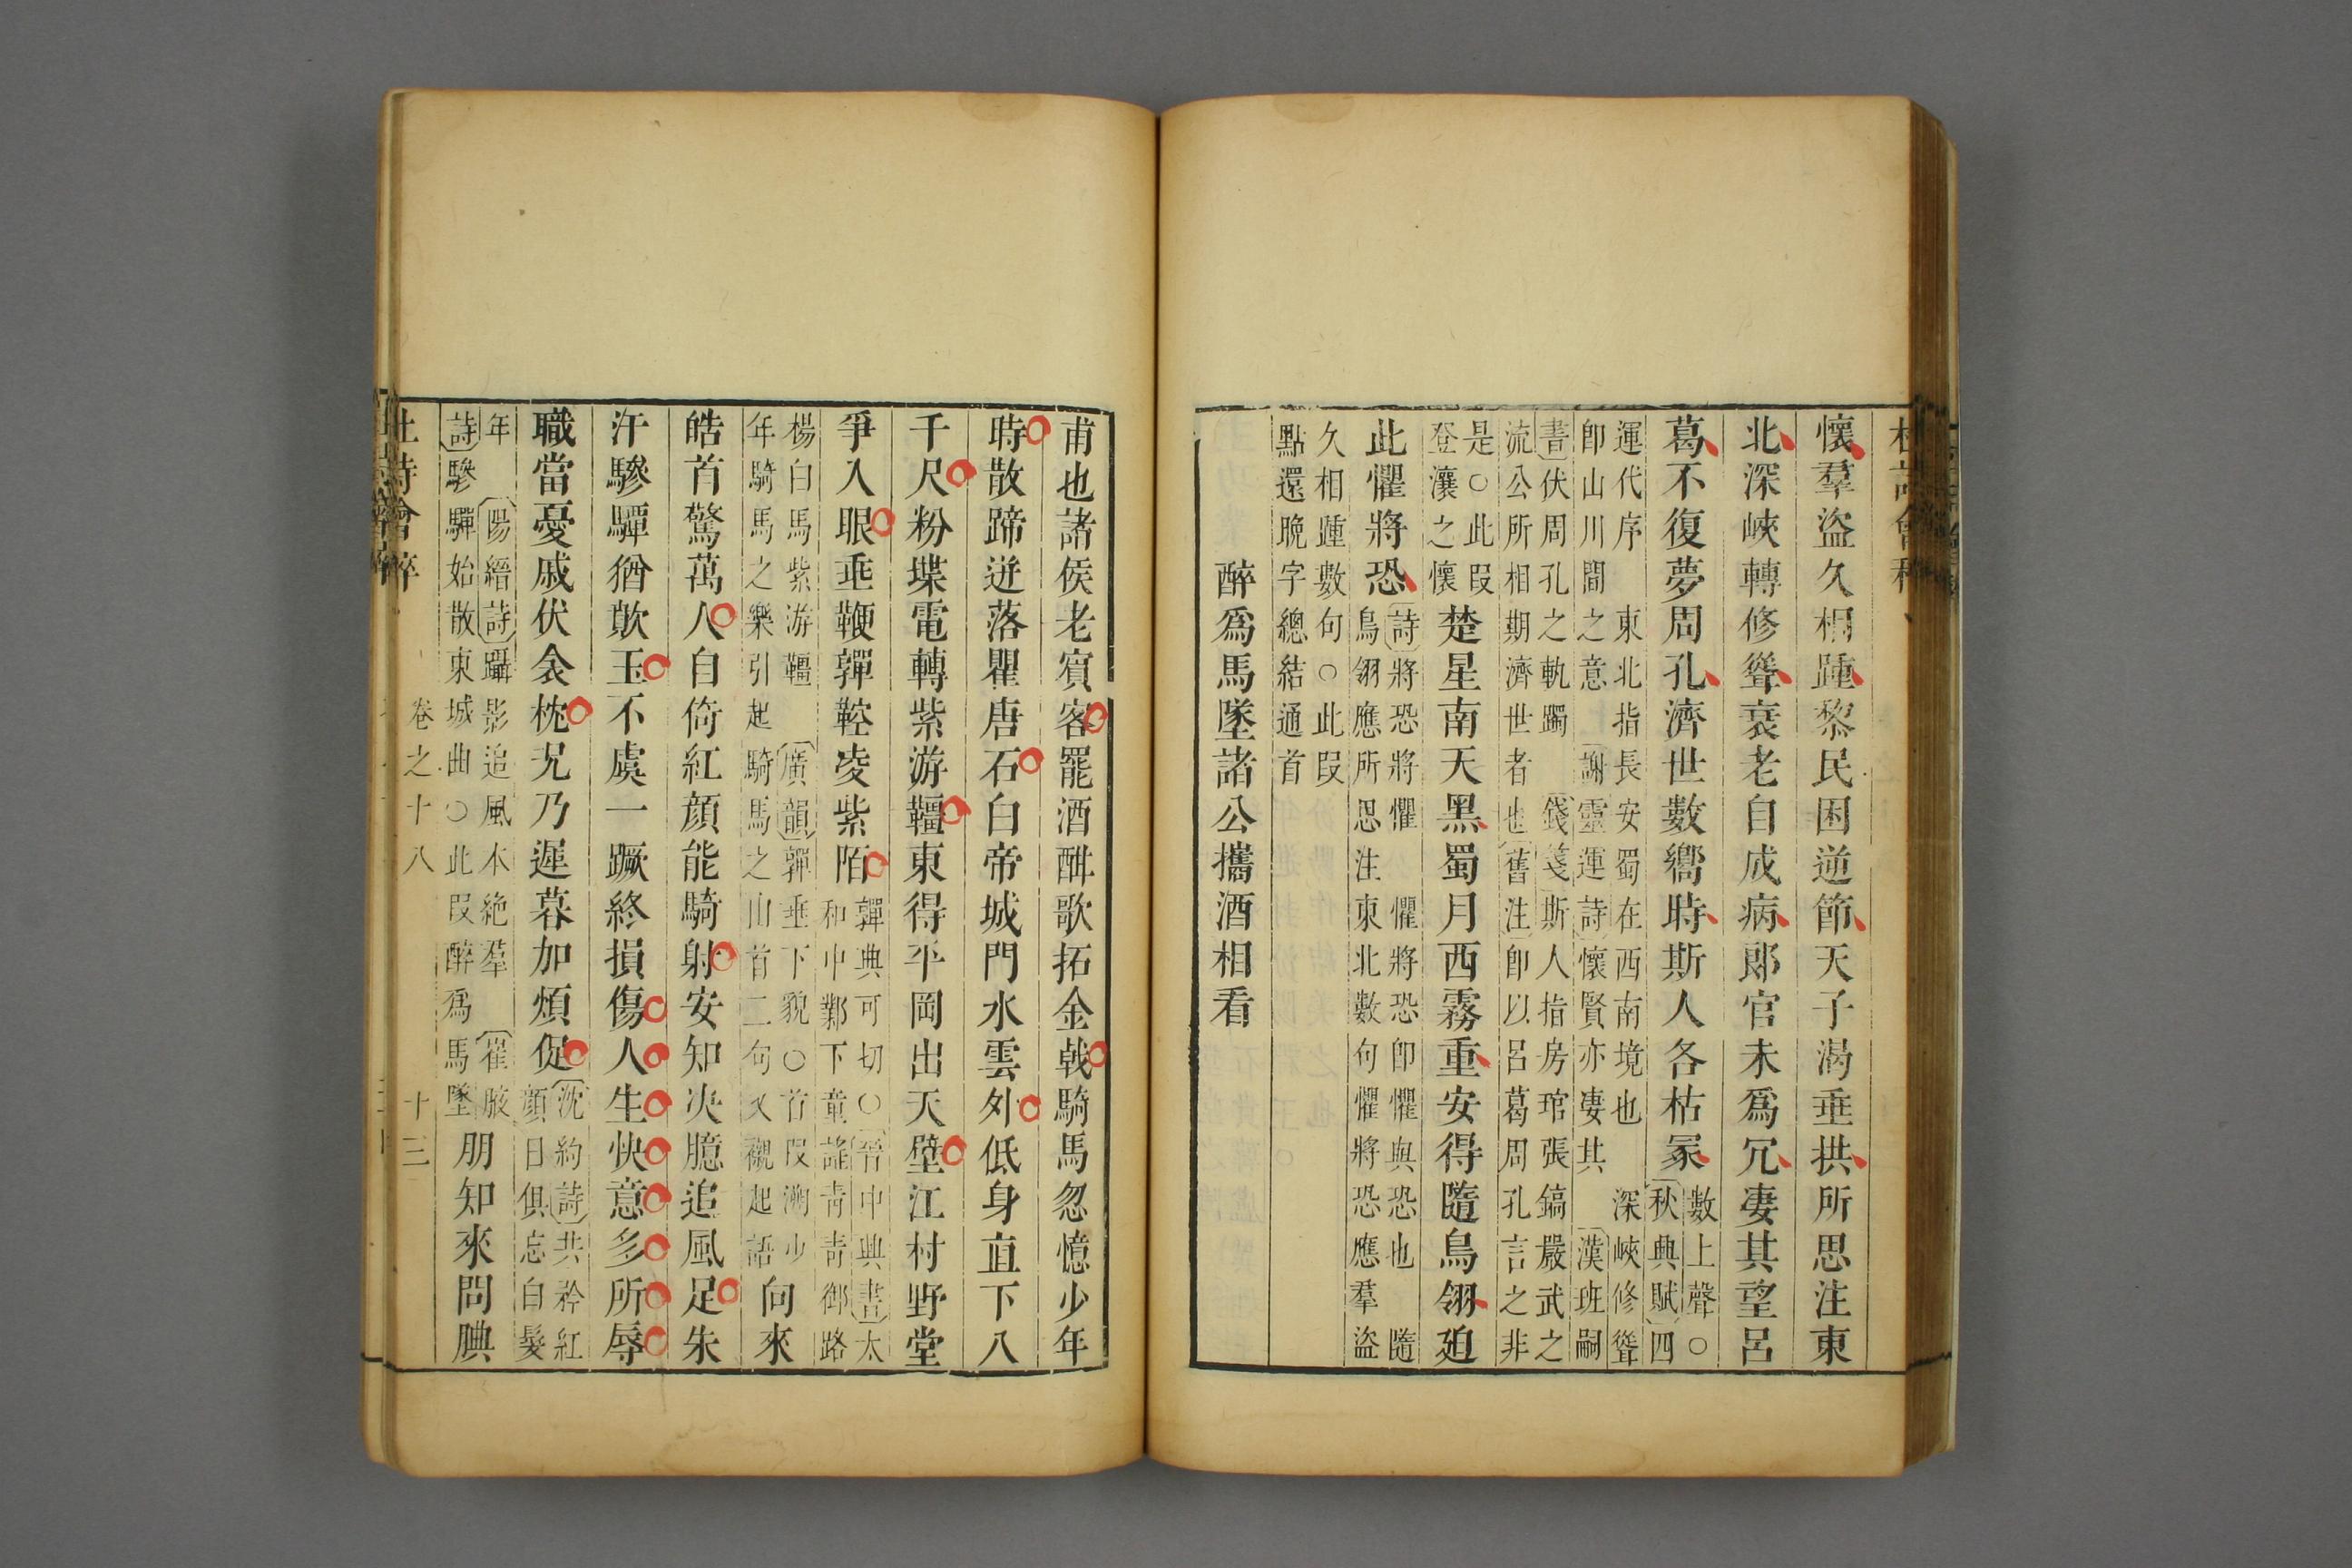 懷羣盜久相踵黎民困逆節天子渴垂拱所思注東
北深峽轉修聳衰老自成病郎官未爲冗凄其望呂
葛不復夢周孔濟世數嚮時斯人各枯冢數上聲○
秋典賦四
運代序　東北指長安蜀在西南境也　深峽修聳
卽山川間之意　謝靈運詩懷賢亦凄其　漢班嗣
書伏周孔之軌躅　錢箋斯人指房琯張鎬嚴武之
流公所相期濟世者也　舊注卽以呂葛周孔言之非
是○此叚
登瀼之懷楚星南天黑蜀月西霧重安得隨鳥翎廹
此懼將恐詩將恐將懼　懼將恐卽懼與恐也　隨
鳥翎應所思注東北數句懼將恐應羣盜
久相踵數句○此叚
點還晚字總結通首
醉爲馬墜諸公攜酒相看
甫也諸侯老賓客罷酒酣歌拓金戟騎馬忽憶少年
時散蹄迸落瞿唐石白帝城門水雲外低身直下八
千尺粉堞電轉紫游韁東得平岡出天壁江村野堂
爭入眼垂鞭嚲鞚凌紫陌嚲典可切○晉中興書太
和中鄴下童謠靑靑御路
楊白馬紫游韁　廣韻嚲垂下貌○首叚溯少
年騎馬之樂引起騎馬之由首二句又襯起語向來
皓首驚萬人自倚紅顔能騎射安知决臆追風足朱
汗驂驔猶歕玉不虞一蹶終損傷人生快意多所辱
職當憂戚伏衾枕况乃遲暮加煩促沈約詩共矜紅
顔日俱忘白髮
年　陽縉詩躡影追風本絶羣　崔液
詩驂驔始散東城曲○此叚醉爲馬墜朋知來問腆
杜詩會稡　卷之十八　十三